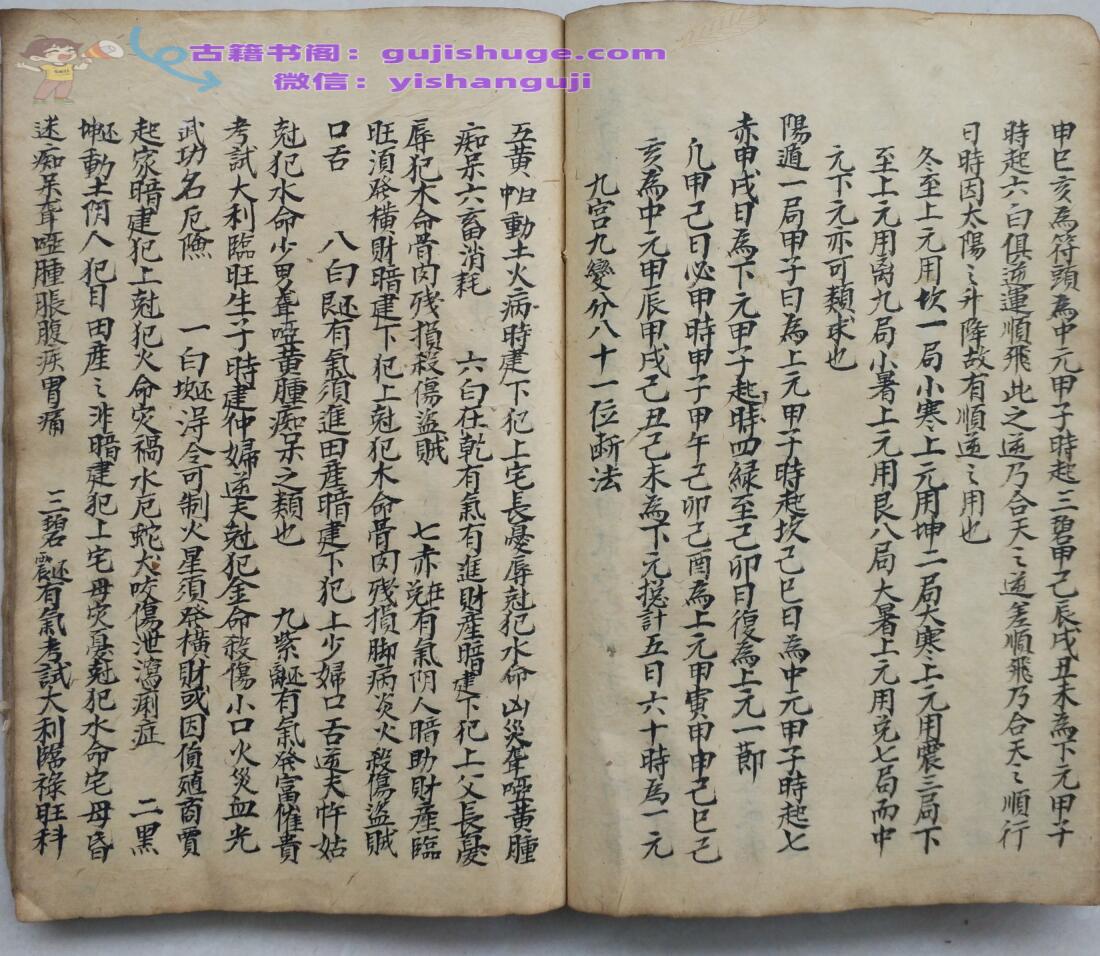 古籍书阁：gujishuge.com
微信：yishanguji
申巳亥為符頭為中元甲子時起三碧甲己辰戌丑未為下元甲子
時起六白俱逆運順飛此之逆乃合天之逆差順飛乃合天之順行
日時因太陽之升降故有順逆之用也
冬至上元用坎一局小寒上元用坤二局大寒上元用震三局下
至上元用离九局小暑上元用艮八局大暑上元用兌七局而中
元下元亦可類求也
陽遁一局甲子日為上元甲子時起坎己巳日為中元甲子時起七
赤甲戌日為下元甲子起時四緑至己卯日復為上元一節
凢甲己日必甲時甲子甲午己卯己酉為上元甲寅甲申己巳己
亥為中元甲辰甲戌己丑己未為下元摠計五日六十時為一元
九宫九變分八十一位断法
五黄中宫動土火病時建下犯上宅長憂辱尅犯水命凶災聾啞黄腫
痴呆六畜消耗 六白在乾有氣有進財產暗建下犯上父長憂
辱犯木命骨肉残損殺傷盜賊 七赤在兌有氣阴人暗助財產臨
旺湏發横財暗建下犯上尅犯木命骨肉残損脚病炎火殺傷盜賊
口舌 八白艮还有氣須進田產暗建下犯上少婦口舌逆夫忤姑
尅犯水命少男聾啞黄腫痴呆之類也 九紫離还有氣發富催貴
考試大利臨旺生子時建仲婦逆夫尅犯金命殺傷小口火災血光
武功名厄險 一白坎还浔令可制火星須發横財或因貨殖商賈
起家暗建犯上尅犯火命灾禍水厄蛇犬咬傷泄瀉痢症 二黑
坤还動土阴人犯目田產之非暗建犯上宅母灾憂尅犯水命宅母昏
迷痴呆聾啞腫脹腹疾胃痛 三碧震还有氣考試大利臨祿旺科